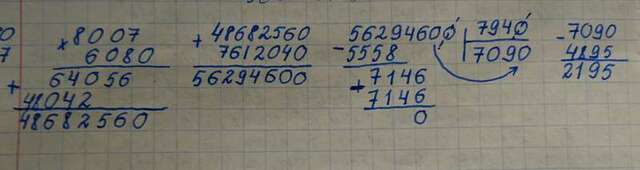 × 8007
6080
+ 64056
48042
48682560
+ 48682560
7612040
56294600
56294600 | 7940
- 5558 | 7090
7146
+ 7146
0
- 7090
4895
2195